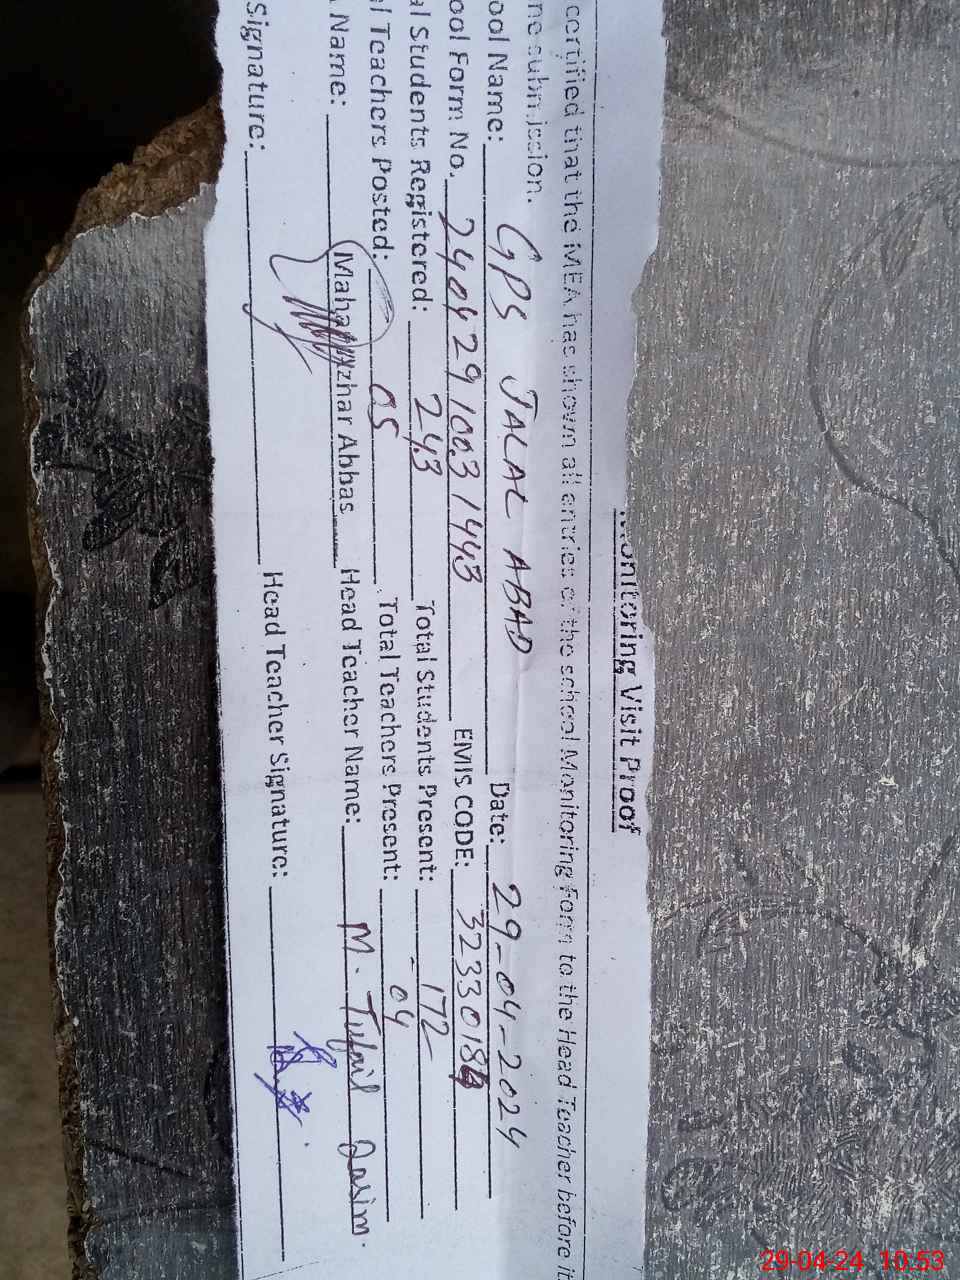 Monitoring Visit Proof
certified that the MEA has shown all entries of the school Monitoring Form to the Head Teacher before it
ne submission.
ool Name: GPS JALAL ABAD Date: 29-04-2024
ool Form No. 24042910031443 EMIS CODE: 32330184
al Students Registered: 243 Total Students Present: 172
al Teachers Posted: 05 Total Teachers Present: 04
Name: Mahar Azhar Abbas Head Teacher Name: M. Tufail Qasim.
Signature: Head Teacher Signature:
29-04-24 10:53